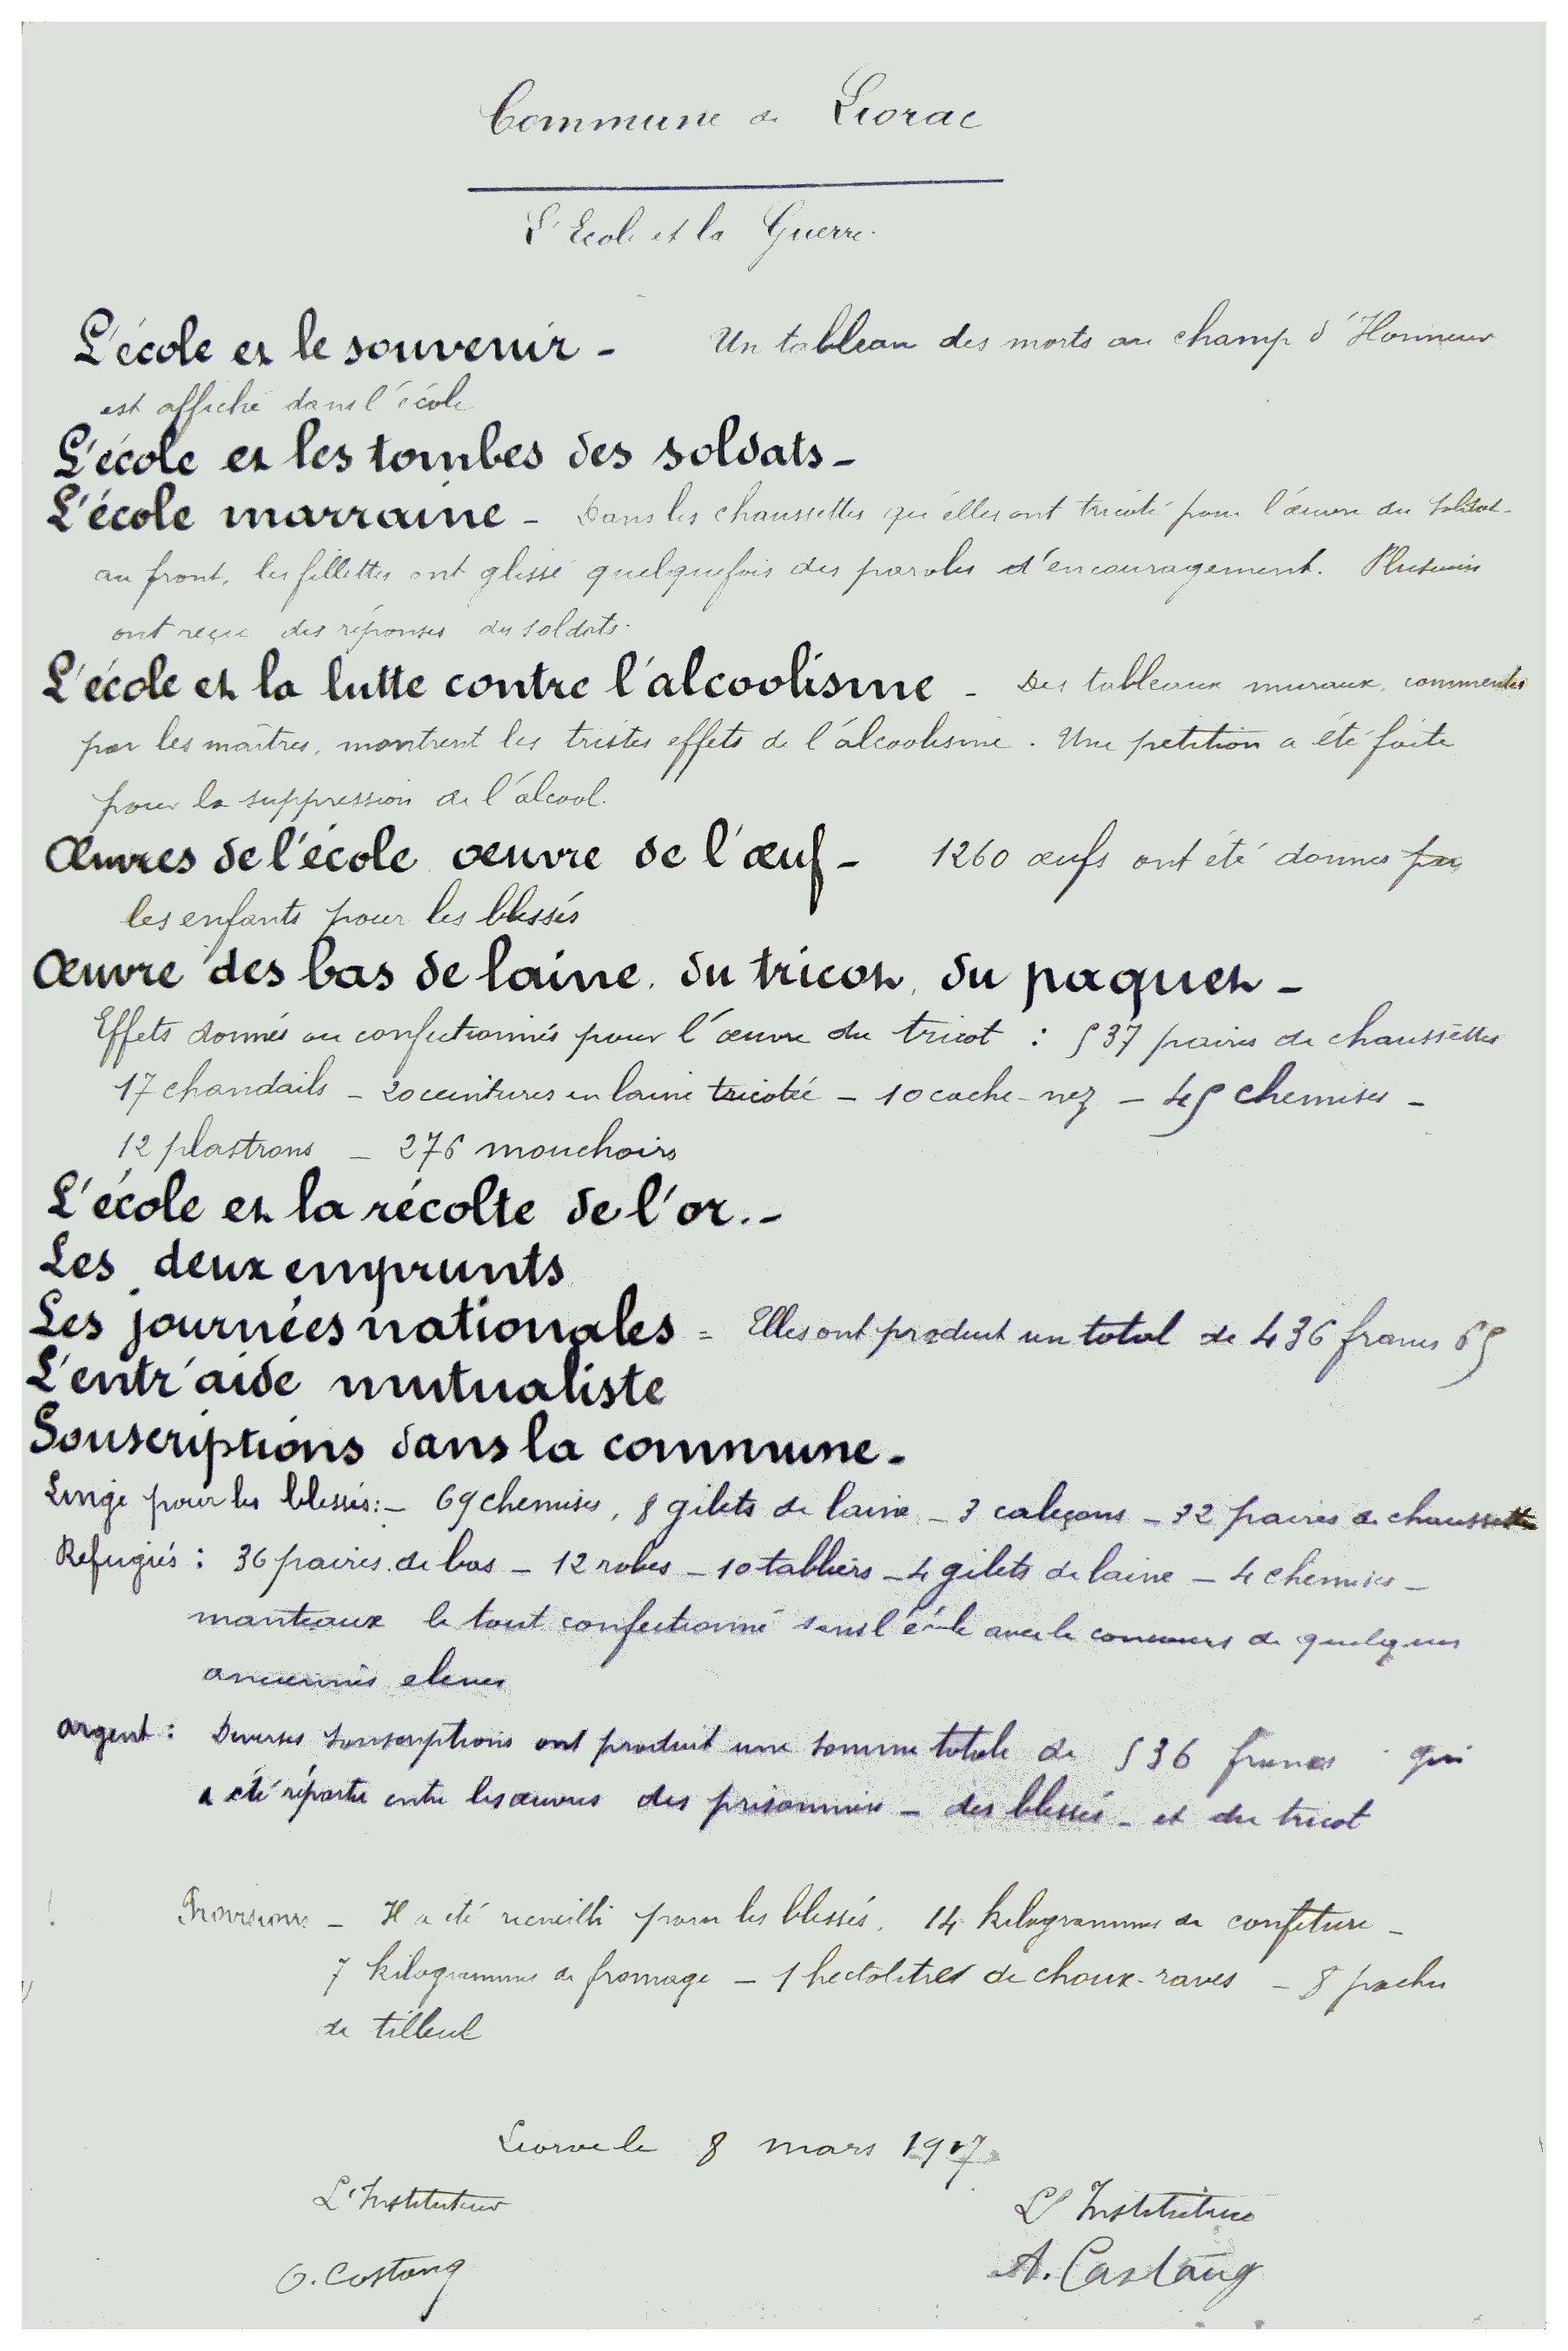 Commune de Liorac
L'Ecole et la Guerre.
L'école et le souvenir - Un tableau des morts au champ d'Honneur
est affiché dans l'école
L'école et les tombes des soldats -
L'école marraine - Dans les chaussettes qu'elles ont tricoté pour l'œuvre du Soldat
au front, les fillettes ont glissé quelquefois des paroles d'encouragement. Plusieurs
ont reçu des réponses des soldats.
L'école et la lutte contre l'alcoolisme - Des tableaux muraux, commentés
par les maîtres, montrent les tristes effets de l'alcoolisme. Une petition a été faite
pour la suppression de l'alcool.
Œuvres de l'école œuvre de l'œuf - 1260 œufs ont été donnés par
les enfants pour les blessés
Œuvre des bas de laine, du tricot, du paquet -
Effets donnés ou confectionnés pour l'œuvre du tricot : 537 paires de chaussettes
17 chandails - 20 ceintures en laine tricotée - 10 cache-nez - 45 chemises -
12 plastrons - 276 mouchoirs
L'école et la récolte de l'or. -
Les deux emprunts
Les journées nationales = Elles ont produit un total de 436 francs 65
L'entr'aide mutualiste
Souscriptions dans la commune -
Linge pour les blessés : - 69 chemises, 8 gilets de laine - 3 caleçons - 32 paires de chaussettes
Refugiés : 36 paires de bas - 12 robes - 10 tabliers - 4 gilets de laine - 4 chemises -
manteaux le tout confectionné dans l'école avec le concours de quelques
anciennes eleves
argent : Diverses souscriptions ont produit une somme totale de 536 francs qui
a été répartie entre les œuvres des prisonniers - des blessés - et du tricot
Provisions - Il a été recueilli pour les blessés, 14 kilogrammes de confiture -
7 kilogrammes de fromage - 1 hectolitres de choux-raves - 8 poches
de tilleul
Liorac le 8 mars 1917
L'Instituteur
L'Institutrice
G. Castang
A. Castang